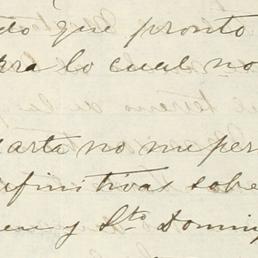 do que pronto
rra lo cual no
arta no me per
efinitivas sobre
en y Sto Doming